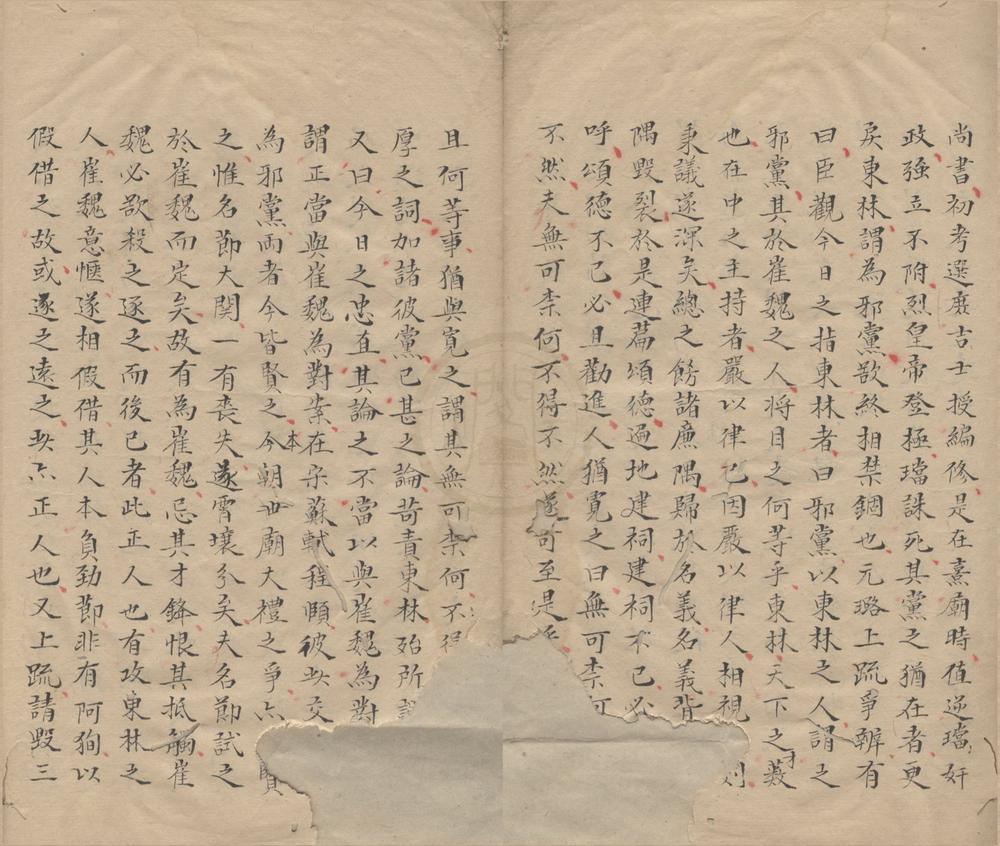 尚書初考選庶吉士授編修是在熹廟時值逆璫奸
政强立不附烈皇帝登極璫誅死其黨之猶在者更
戾東林謂為邪黨欲終相禁錮也元璐上疏爭辨有
曰臣觀今日之指東林者曰邪黨以東林之人謂之
邪黨其於崔魏之人將目之何等乎東林天下之才薮
也在中之主持者嚴以律己因嚴以律人相視
秉議遂深矣總之餝諸廉隅歸於名義名義背
隅毀裂於是連篇頌德遍地建祠建祠不已必
呼頌德不已必且勸進人猶寬之曰無可柰何
不然夫無可柰何不得不然遂可至是乎
且何等事猶與寬之謂其無可柰何不得
厚之詞加諸彼黨已甚之論苛責東林殆所
又曰今日之忠直其論之不當以與崔魏為對
謂正當與崔魏為對案在宋蘇軾程頤彼此交
為邪黨両者今皆賢之今本朝世廟大禮之爭亦
之惟名節大閑一有喪失遂霄壤分矣夫名節試之
於崔魏而定矣故有為崔魏忌其才鋒恨其抵觸崔
魏必欲殺之逐之而後已者此正人也有攻東林之
人崔魏意愜遂相假借其人本負勁節非有阿狥以
假借之故或遂之遠之此亦正人也又上疏請毀三